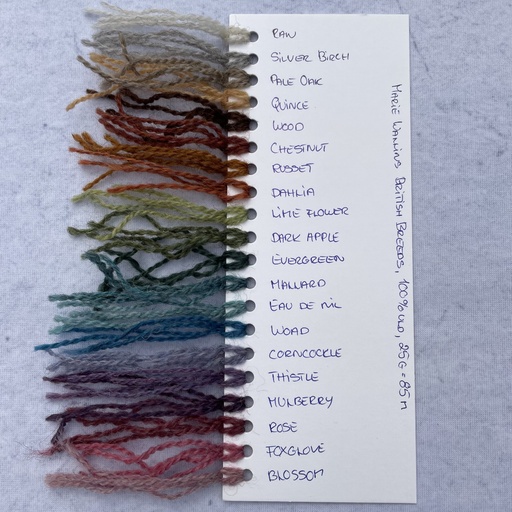 RAW
SILVER BIRCH
PALE OAK
QUINCE
WOOD
CHESTNUT
RUSSET
DAHLIA
LIME FLOWER
DARK APPLE
EVERGREEN
MALLARD
EAU DE NIL
WOAD
CORNCOCKLE
THISTLE
MULBERRY
ROSE
FOXGLOVE
BLOSSOM
MARIE WALLIN'S BRITISH BREEDS, 100% , 25G = 85M